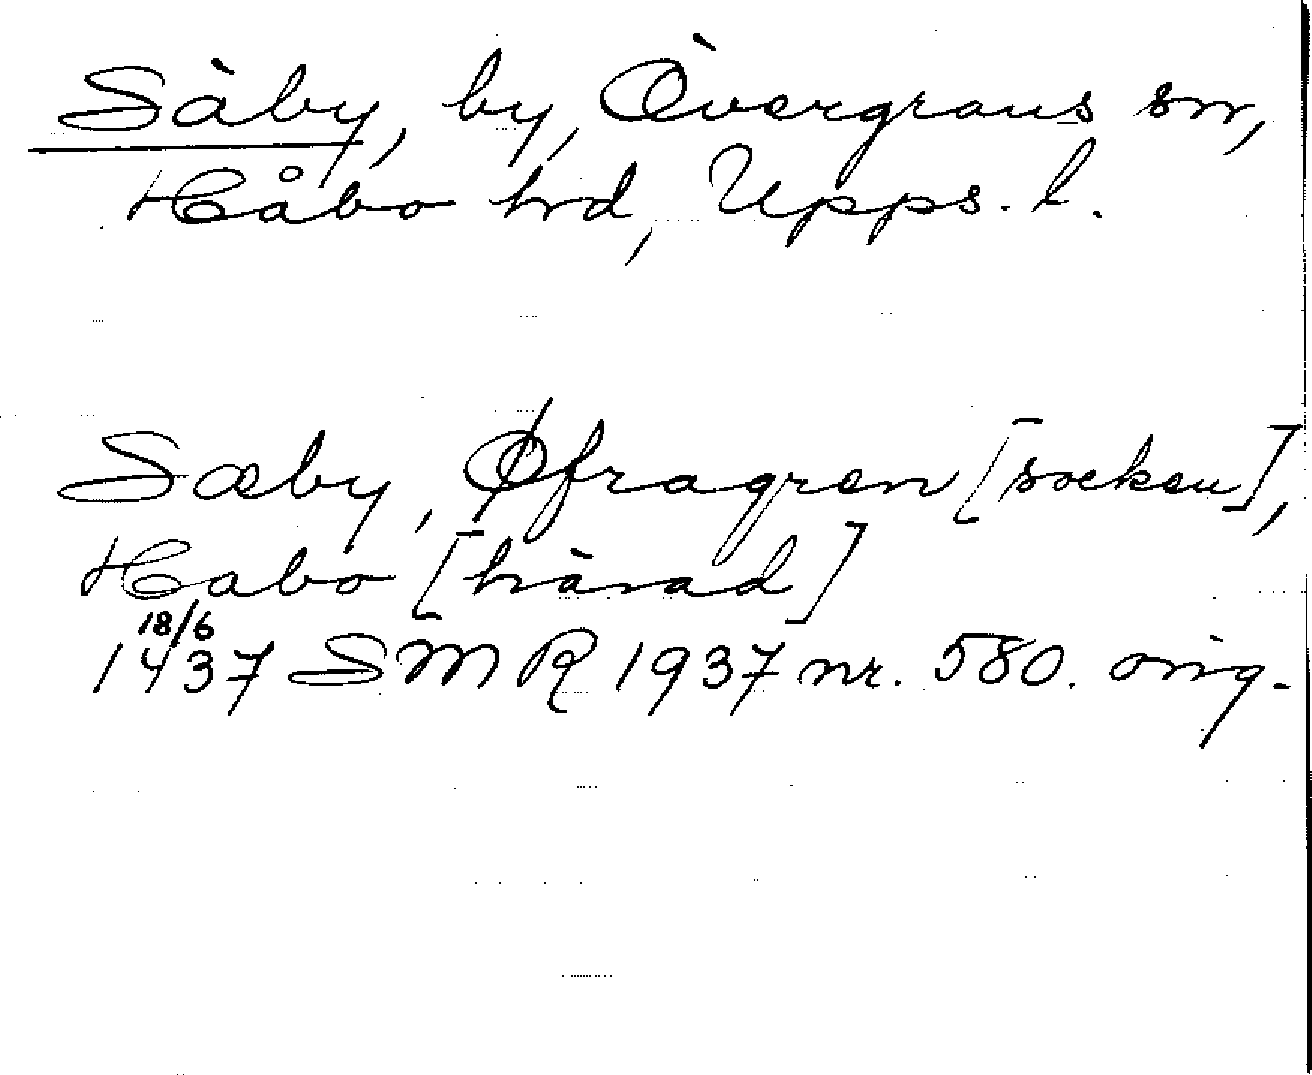 Säby, by, Övergrans sn,
Håbo hrd, Upps. l.
Sæby, Øfragren [socken],
Habo [härad]
18/6
1437 SMR 1937 nr. 580. orig.